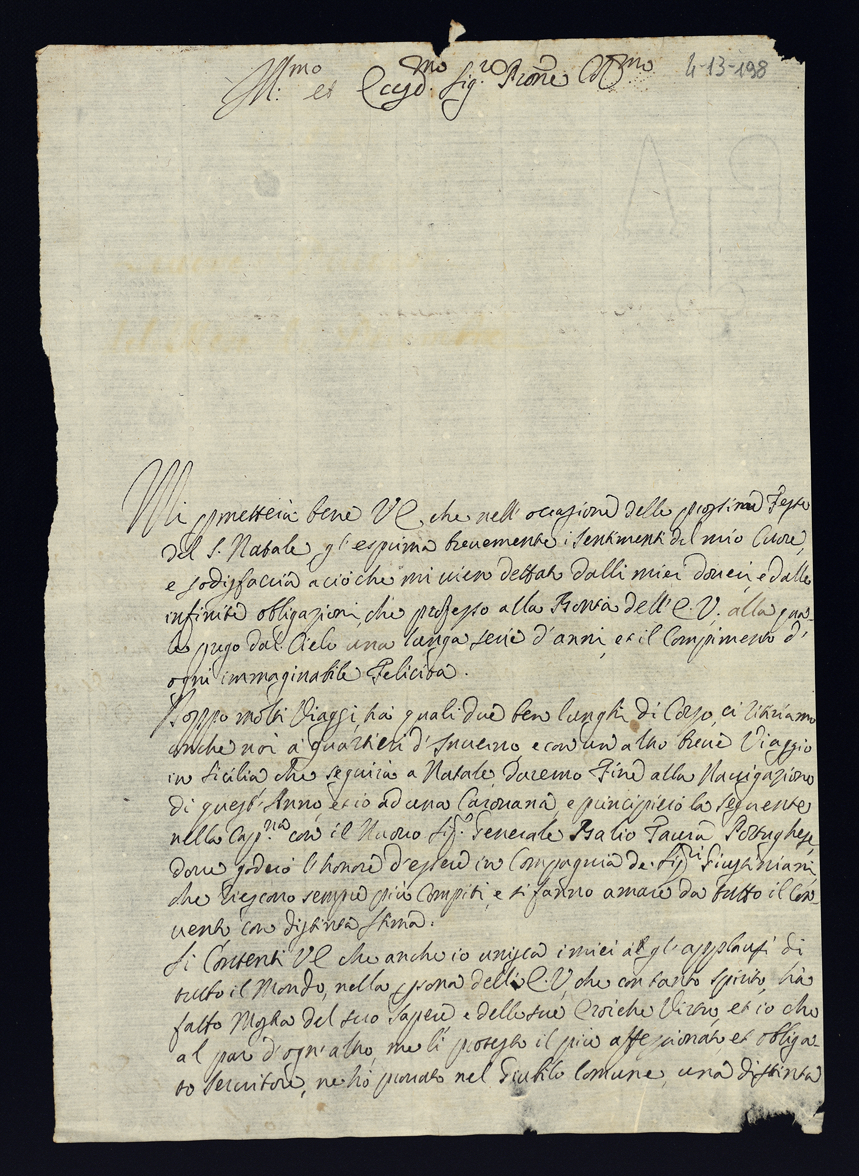 Ill.mo et Ecc.mo Sig.re Prone Col.mo
4-13-198
Mi pmetterà bene V.E. che nell'occasione delle prossime Feste
del S. Natale, gl'esprima brevemente i sentimenti del mio Cuore,
e sodisfaccia a ciò che mi vien dettato dalli miei doveri, e dalle
infinite obligazioni, che professo alla Bontà dell'E.V. alla qua-
le prego dal Cielo una lunga serie d'anni, et il Compimento d'
ogni immaginabile Felicità.
Doppo molti Viaggi, trai quali due ben lunghi di Corso, ci ritiriamo
anche noi a quartieri d'Inverno, e con un altro breve Viaggio
in Sicilia che seguirà a Natale daremo Fine alla Navigazione
di quest'Anno, et io ad una Carovana e principierò la seguente
nella Cap.na con il Nuovo Sig.r Generale Balio Tavra Portughese,
dove goderò l'honore d'essere in Compagnia de Sig.ri Giustiniani,
che riescono sempre più Compiti, e si fanno amare da tutto il Con-
vento con distinta stima.
Si Contenti V.E. che anche io unisca i miei a gl'applausi di
tutto il Mondo, nella psona dell'E.V. che con tanto spirito, hà
fatto Mostra del suo sapere e delle sue Eroiche Virtù, et io che
al par d'ogn'altro, me li protesto il più affezionato et obliga-
to servitore, ne hò provato nel Giubilo Comune, una distinta